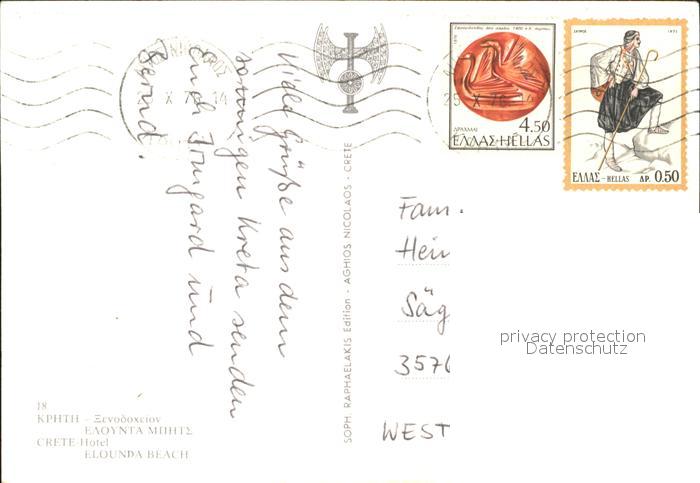 Viele Grüße aus dem
sonnigen Kreta senden
Euch Irmgard und
Bernd.
4.50
ΔΡΑΧΜΑΙ
ΕΛΛΑΣ-HELLAS
1973
ΕΛΛΑΣ - HELLAS ΔΡ. 0.50
25 X 76 14
SOPH. RAPHAELAKIS Edition - AGHIOS NICOLAOS - CRETE
Fam.
Hein
Säg
3576
WEST
privacy protection
Datenschutz
18
ΚΡΗΤΗ - Ξενοδοχείον
ΕΛΟΥΝΤΑ ΜΠΗΤΣ
CRETE-Hotel
ELOUNDA BEACH